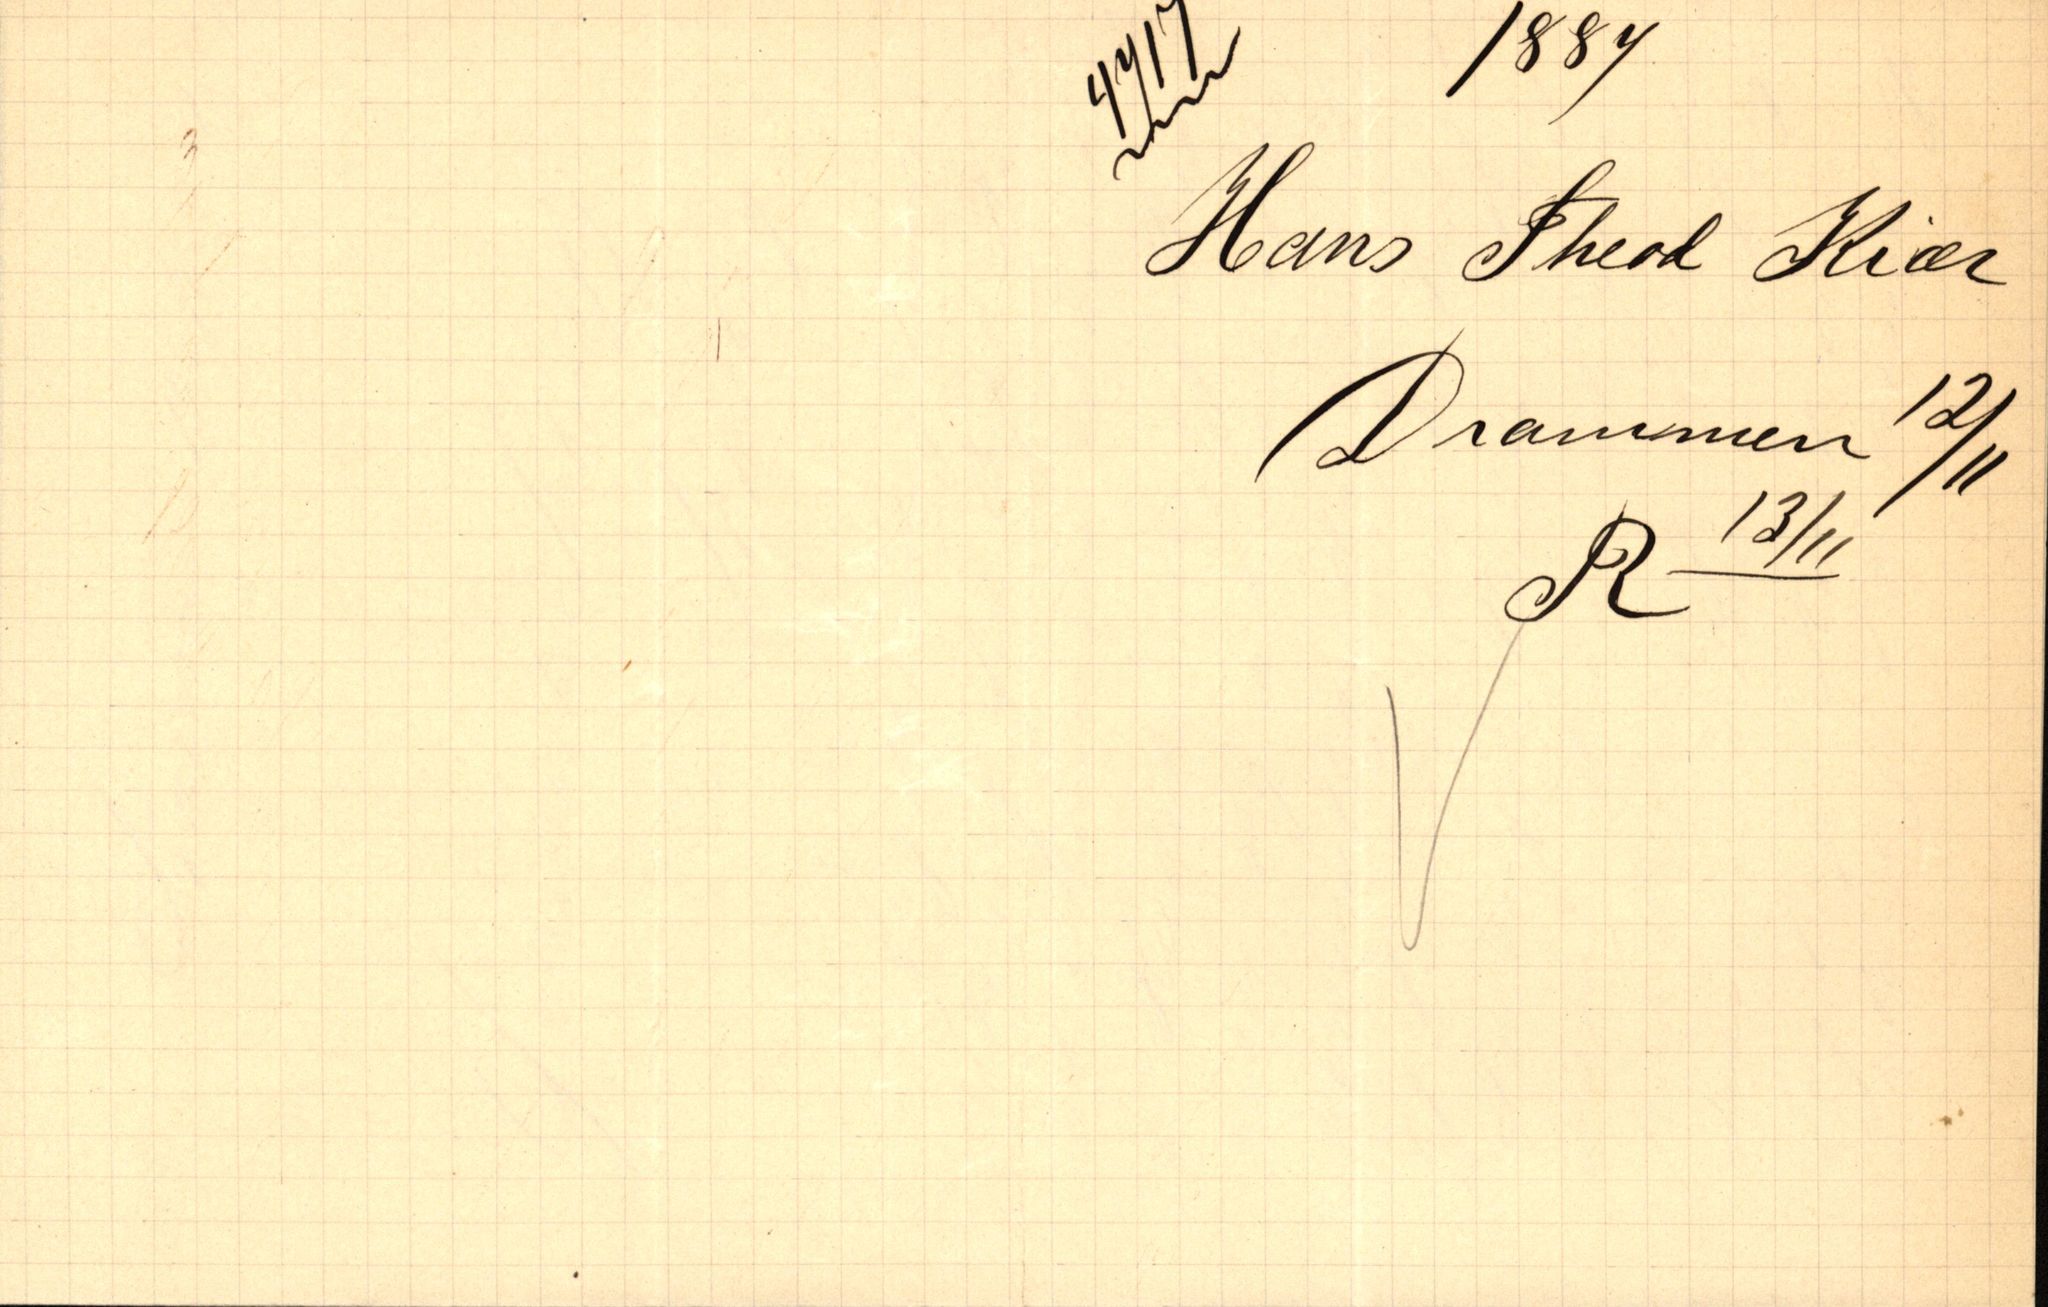 1887
Hans Theod Kiær
Drammen 12/11
R 13/11